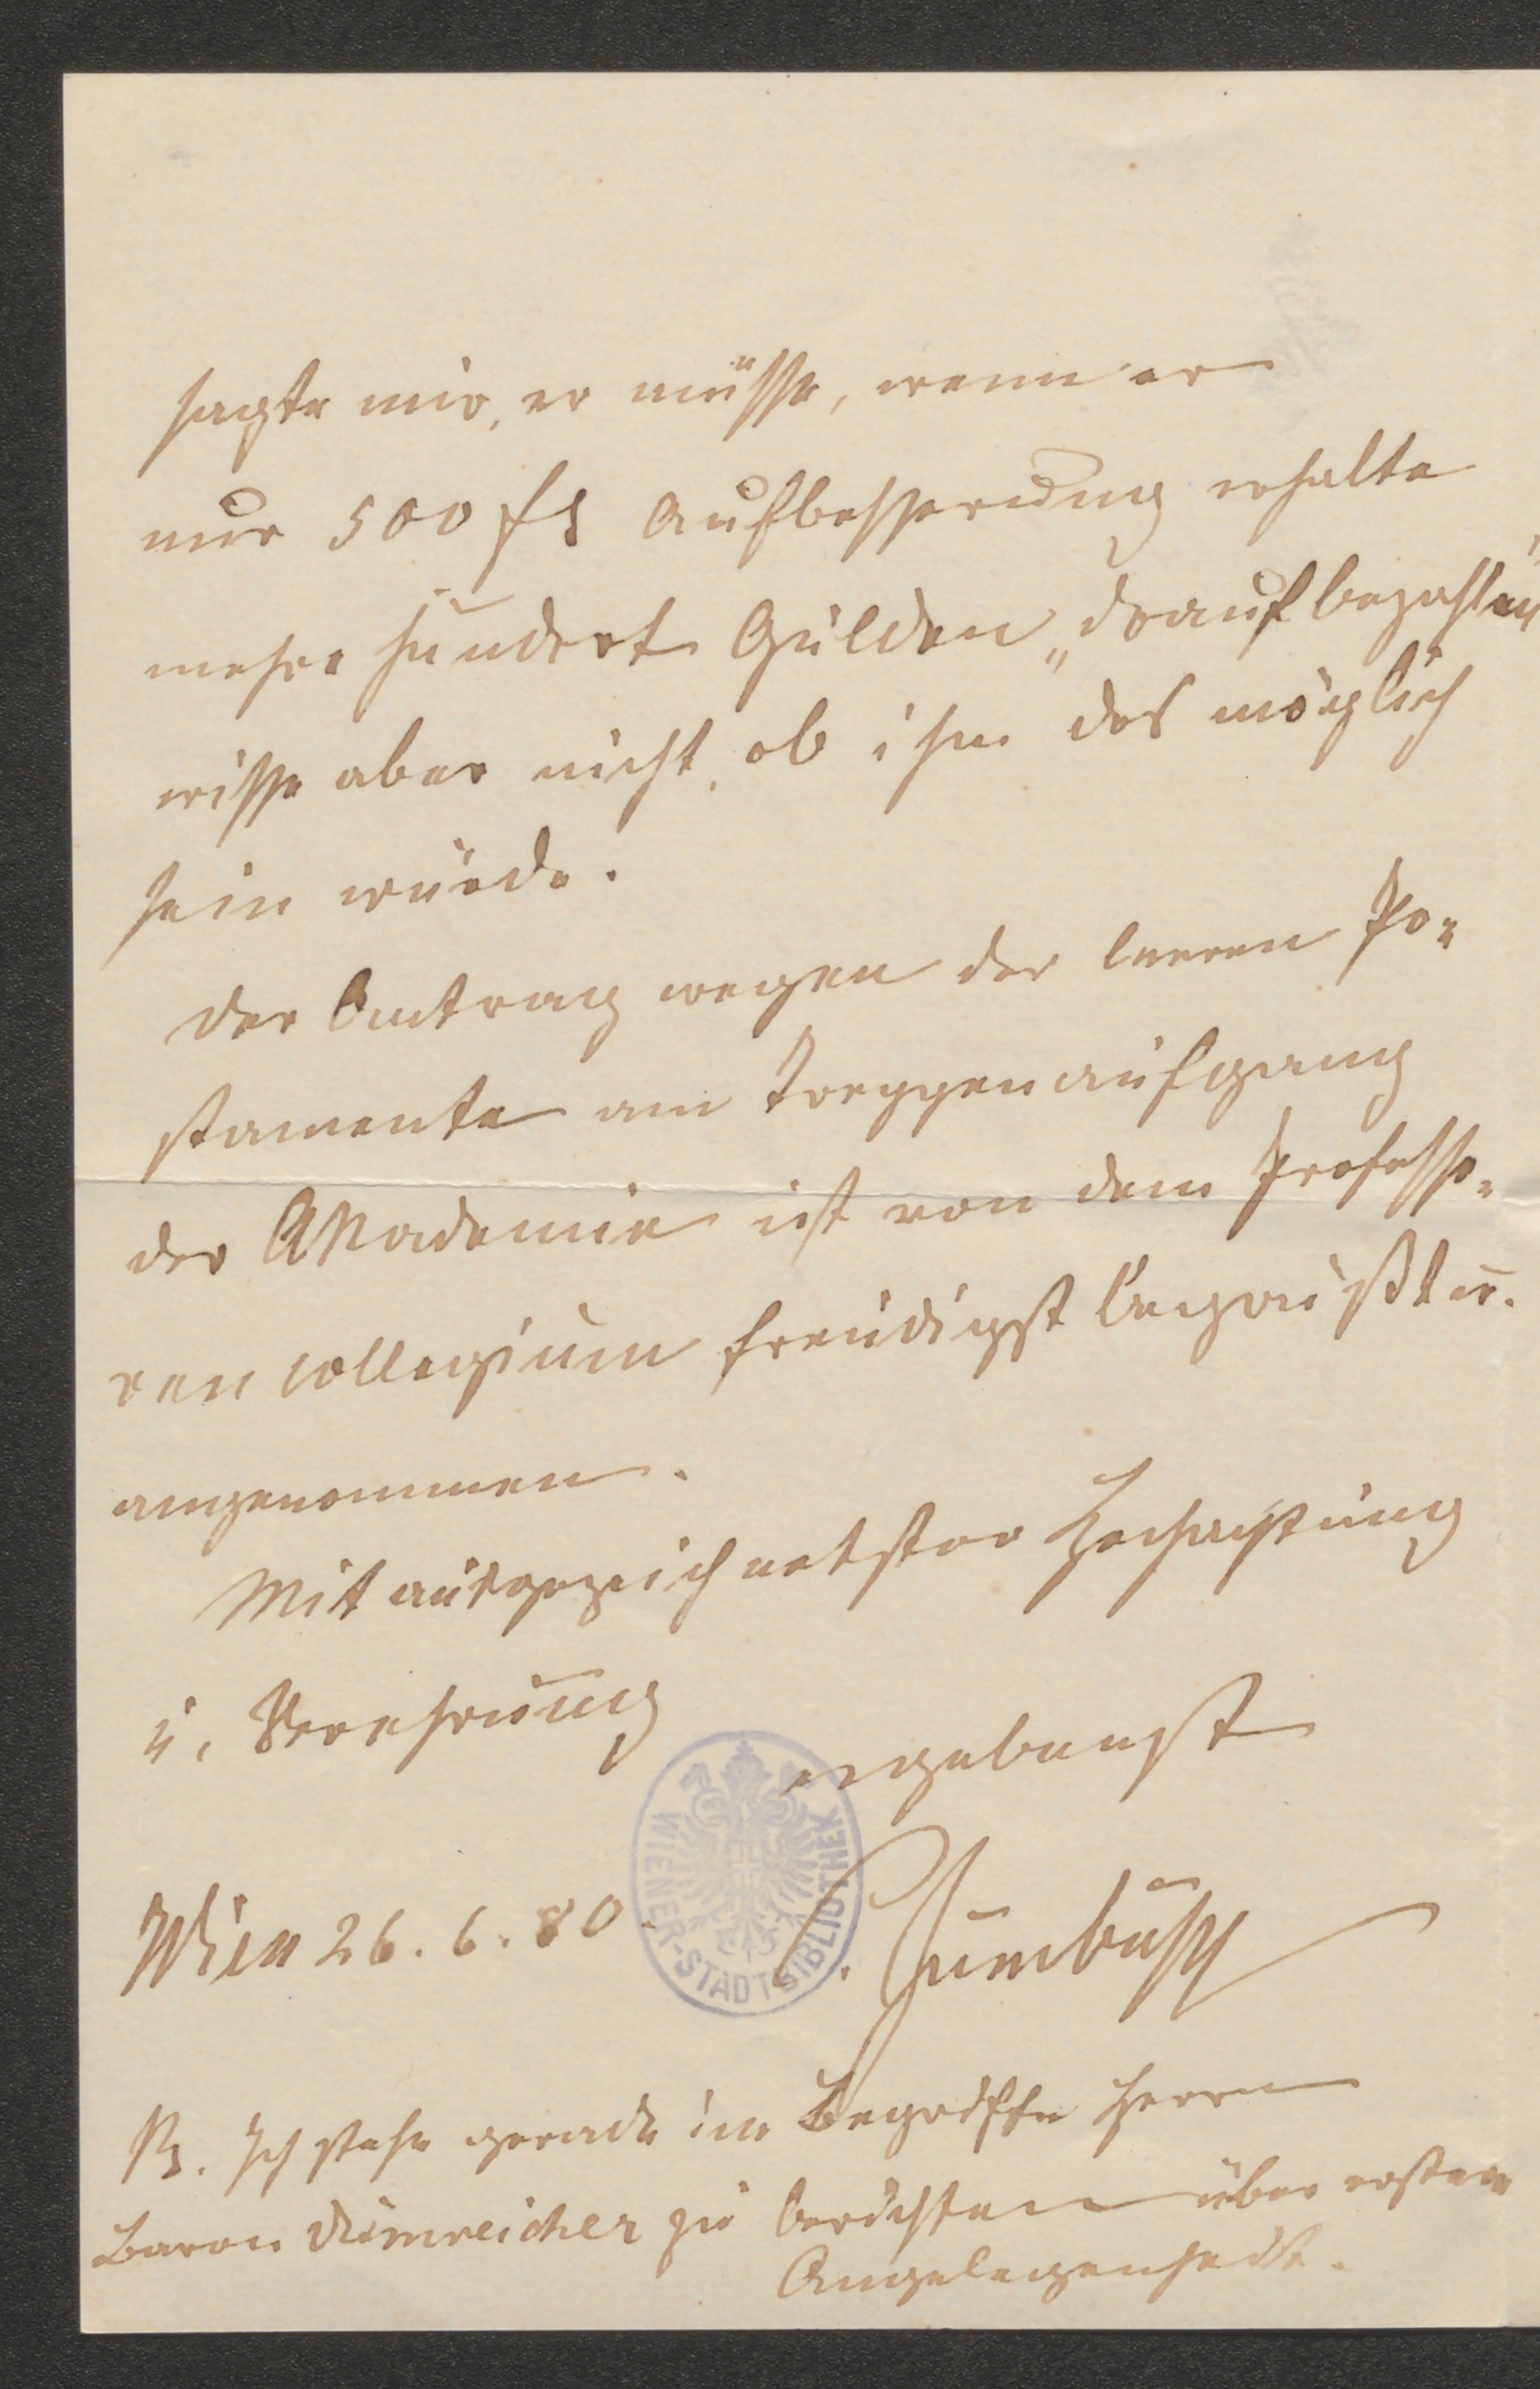 sagte mir, er müsse, wenn er
nur 500 fl Aufbesserung erhalte
mehre hundert Gulden „draufbezahlen“
wisse aber nicht, ob ihm das möglich
sein würde.
Der Antrag wegen der leeren Po-
stamente am Treppenaufgang
der Akademie ist von dem Professo-
ren collegium freudigst begrüßt u.
angenommen.
Mit ausgezeichnetster Hochachtung
u. Verehrung
ergebenst
Wien 26. 6. 80.
C. Zumbusch
WIENER-STADTBIBLIOTHEK
Ps. Ich stehe gerade im Begriffe Herrn
Baron Dumreicher zu berichten über erstere
Angelegenheit.